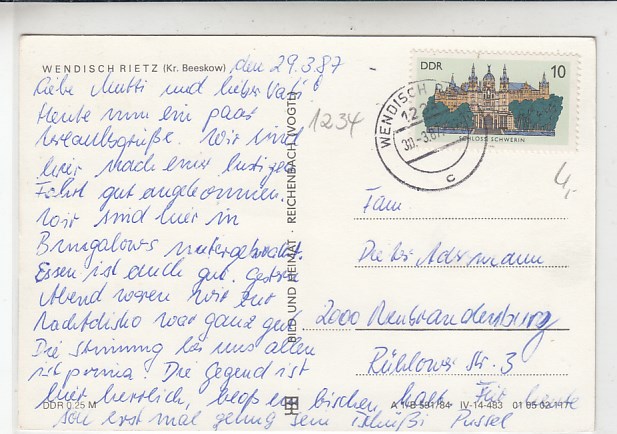 WENDISCH RIETZ (Kr. Beeskow) den 29.3.87
Liebe Mutti und lieber Vati!
Heute nun ein paar
Urlaubsgrüße. Wir sind
hier nach einer lustigen
Fahrt gut angekommen.
Wir sind hier in
Bungalows untergebracht.
Essen ist auch gut. Gestern
Abend waren wir zur
Nachtdisko war ganz gut
Die Stimmung bei uns allen
ist prima. Die Gegend ist
hier herrlich, bloß ein bischen kalt. Für heute
soll erst mal genug sein Tschüßi
DDR 0.25 M
1234
BILD UND HEIMAT · REICHENBACH (VOGTL)
DDR 10
SCHLOSS SCHWERIN
WENDISCH
30.-3.87
c
4,-
Fam.
2000 Neubrandenburg
Rühlower Str. 3
A 1/B 591/84 IV-14-483 01 05 02 117